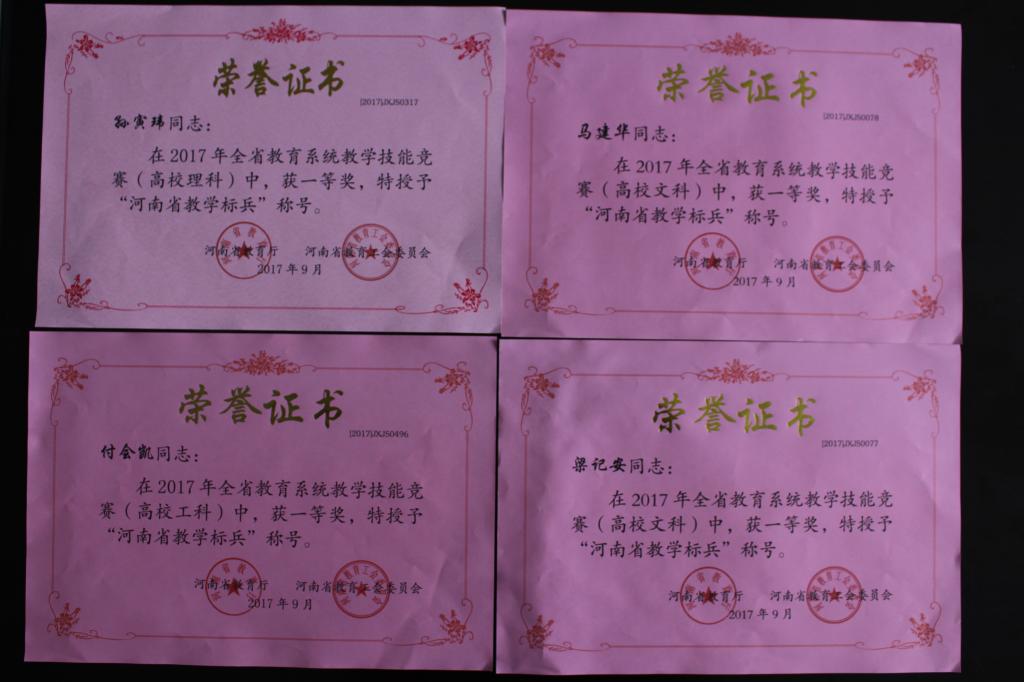 荣誉证书
[2017]JXJS0317
孙寅玮同志：
在2017年全省教育系统教学技能竞
赛（高校理科）中，获一等奖，特授予
“河南省教学标兵”称号。
河南省教育厅 河南省教育工会委员会
2017年9月
荣誉证书
[2017]JXJS0078
马建华同志：
在2017年全省教育系统教学技能竞
赛（高校文科）中，获一等奖，特授予
“河南省教学标兵”称号。
河南省教育厅 河南省教育工会委员会
2017年9月
荣誉证书
[2017]JXJS0496
付会凯同志：
在2017年全省教育系统教学技能竞
赛（高校工科）中，获一等奖，特授予
“河南省教学标兵”称号。
河南省教育厅 河南省教育工会委员会
2017年9月
荣誉证书
[2017]JXJS0077
梁记安同志：
在2017年全省教育系统教学技能竞
赛（高校文科）中，获一等奖，特授予
“河南省教学标兵”称号。
河南省教育厅 河南省教育工会委员会
2017年9月